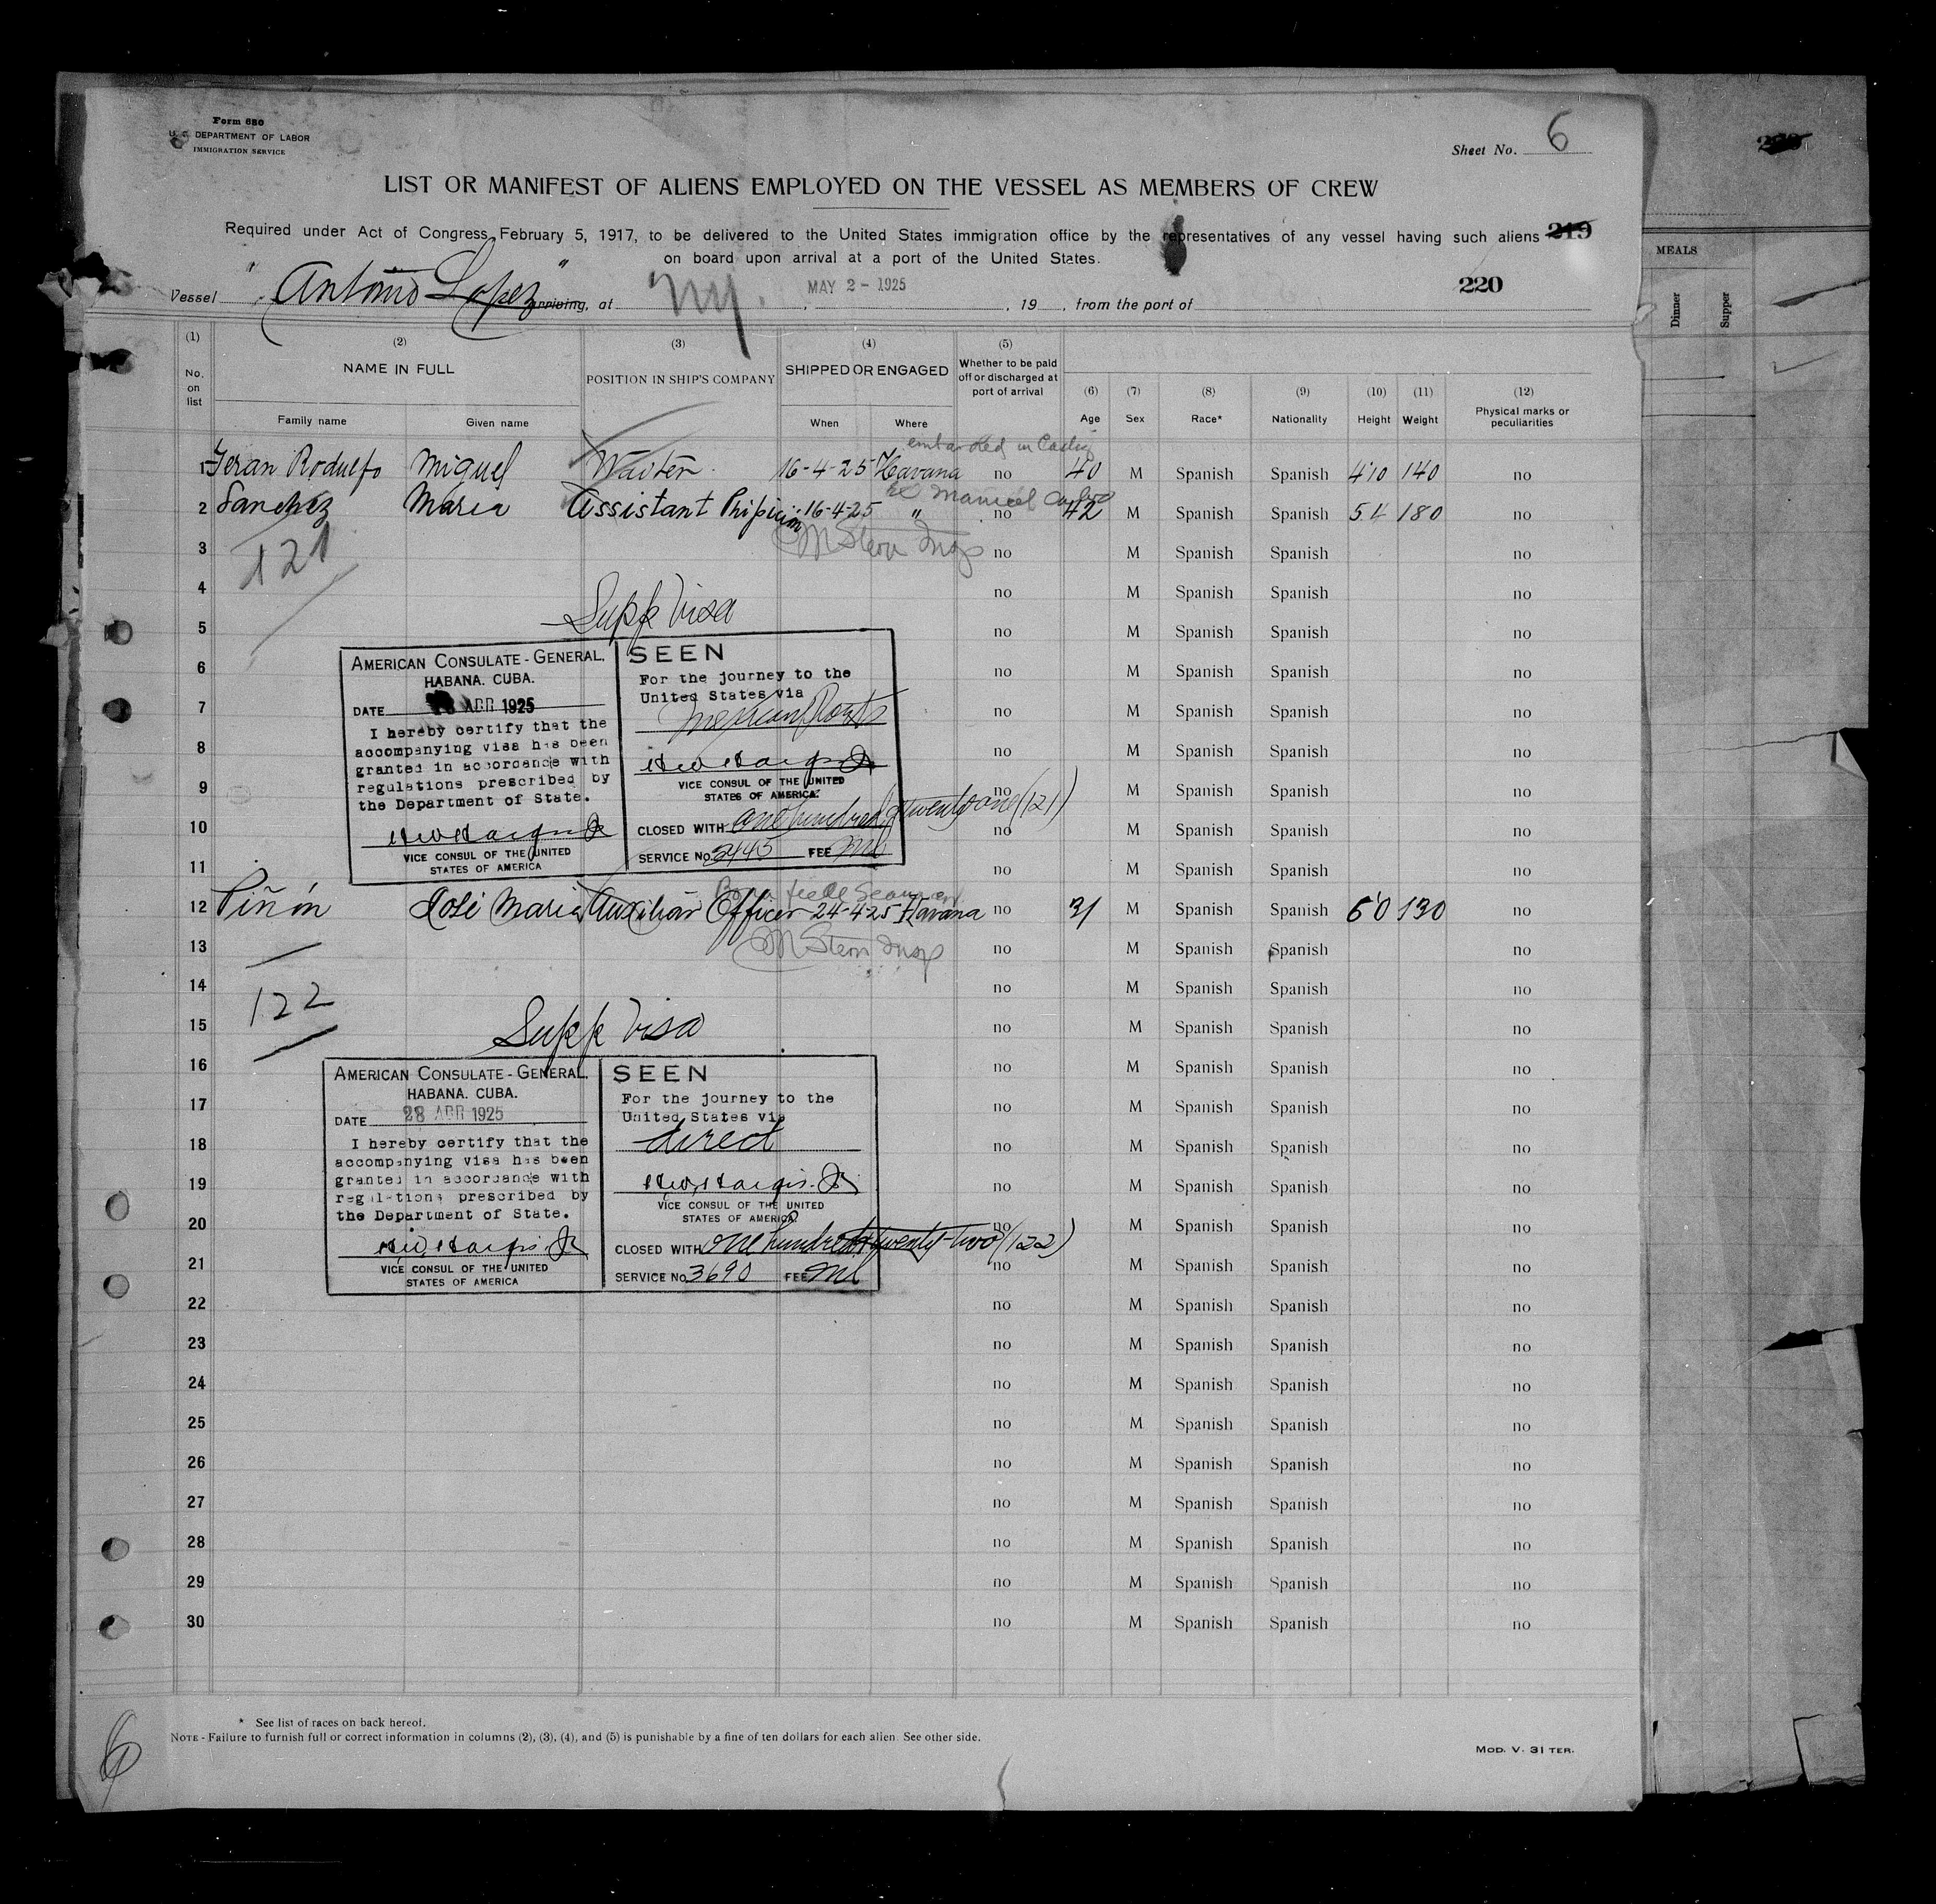 Form 680
U. S. DEPARTMENT OF LABOR
IMMIGRATION SERVICE
Sheet No. 6
LIST OR MANIFEST OF ALIENS EMPLOYED ON THE VESSEL AS MEMBERS OF CREW
Required under Act of Congress February 5, 1917, to be delivered to the United States immigration office by the representatives of any vessel having such aliens 219
on board upon arrival at a port of the United States.
220
Vessel "Antonio Lopez" arriving, at Ny. MAY 2 - 1925, 19 , from the port of
MEALS
Dinner
Supper
(1) (2) (3) (4) (5)
No. on list
NAME IN FULL
POSITION IN SHIP'S COMPANY
SHIPPED OR ENGAGED
Whether to be paid off or discharged at port of arrival
(6) (7) (8) (9) (10) (11) (12)
Family name Given name When Where Age Sex Race* Nationality Height Weight Physical marks or peculiarities
embarked in
1 Rodulfo Miguel Waiter 16-4-25 Havana no 40 M Spanish Spanish 410 140 no
Manuel Calvo
2 Sanchez Maria Assistant 16-4-25 " no 42 M Spanish Spanish 54 180 no
M Stern Insp
3 no M Spanish Spanish no
121
4 no M Spanish Spanish no
Supp Visa
5 no M Spanish Spanish no
6 no M Spanish Spanish no
7 no M Spanish Spanish no
8 no M Spanish Spanish no
9 no M Spanish Spanish no
10 no M Spanish Spanish no
11 no M Spanish Spanish no
AMERICAN CONSULATE-GENERAL,
HABANA. CUBA.
DATE APR 1925
I hereby certify that the
accompanying visa has been
granted in accordance with
regulations prescribed by
the Department of State.
VICE CONSUL OF THE UNITED
STATES OF AMERICA
SEEN
For the journey to the
United States via
VICE CONSUL OF THE UNITED
STATES OF AMERICA.
CLOSED WITH one hundred twenty one (121)
SERVICE No. 3445 FEE
12 Piñón José Maria Officer 24-4-25 Havana no 31 M Spanish Spanish 60 130 no
M Stern Insp
13 no M Spanish Spanish no
14 no M Spanish Spanish no
122
15 no M Spanish Spanish no
Supp Visa
16 no M Spanish Spanish no
17 no M Spanish Spanish no
18 no M Spanish Spanish no
19 no M Spanish Spanish no
20 no M Spanish Spanish no
21 no M Spanish Spanish no
AMERICAN CONSULATE-GENERAL,
HABANA. CUBA.
DATE 28 APR 1925
I hereby certify that the
accompanying visa has been
granted in accordance with
regulations prescribed by
the Department of State.
VICE CONSUL OF THE UNITED
STATES OF AMERICA
SEEN
For the journey to the
United States via
direct
VICE CONSUL OF THE UNITED
STATES OF AMERICA
CLOSED WITH one hundred twenty-two (122)
SERVICE No. 3690 FEE
22 no M Spanish Spanish no
23 no M Spanish Spanish no
24 no M Spanish Spanish no
25 no M Spanish Spanish no
26 no M Spanish Spanish no
27 no M Spanish Spanish no
28 no M Spanish Spanish no
29 no M Spanish Spanish no
30 no M Spanish Spanish no
* See list of races on back hereof.
NOTE - Failure to furnish full or correct information in columns (2), (3), (4), and (5) is punishable by a fine of ten dollars for each alien. See other side.
MOD. V. 31 TER.
6